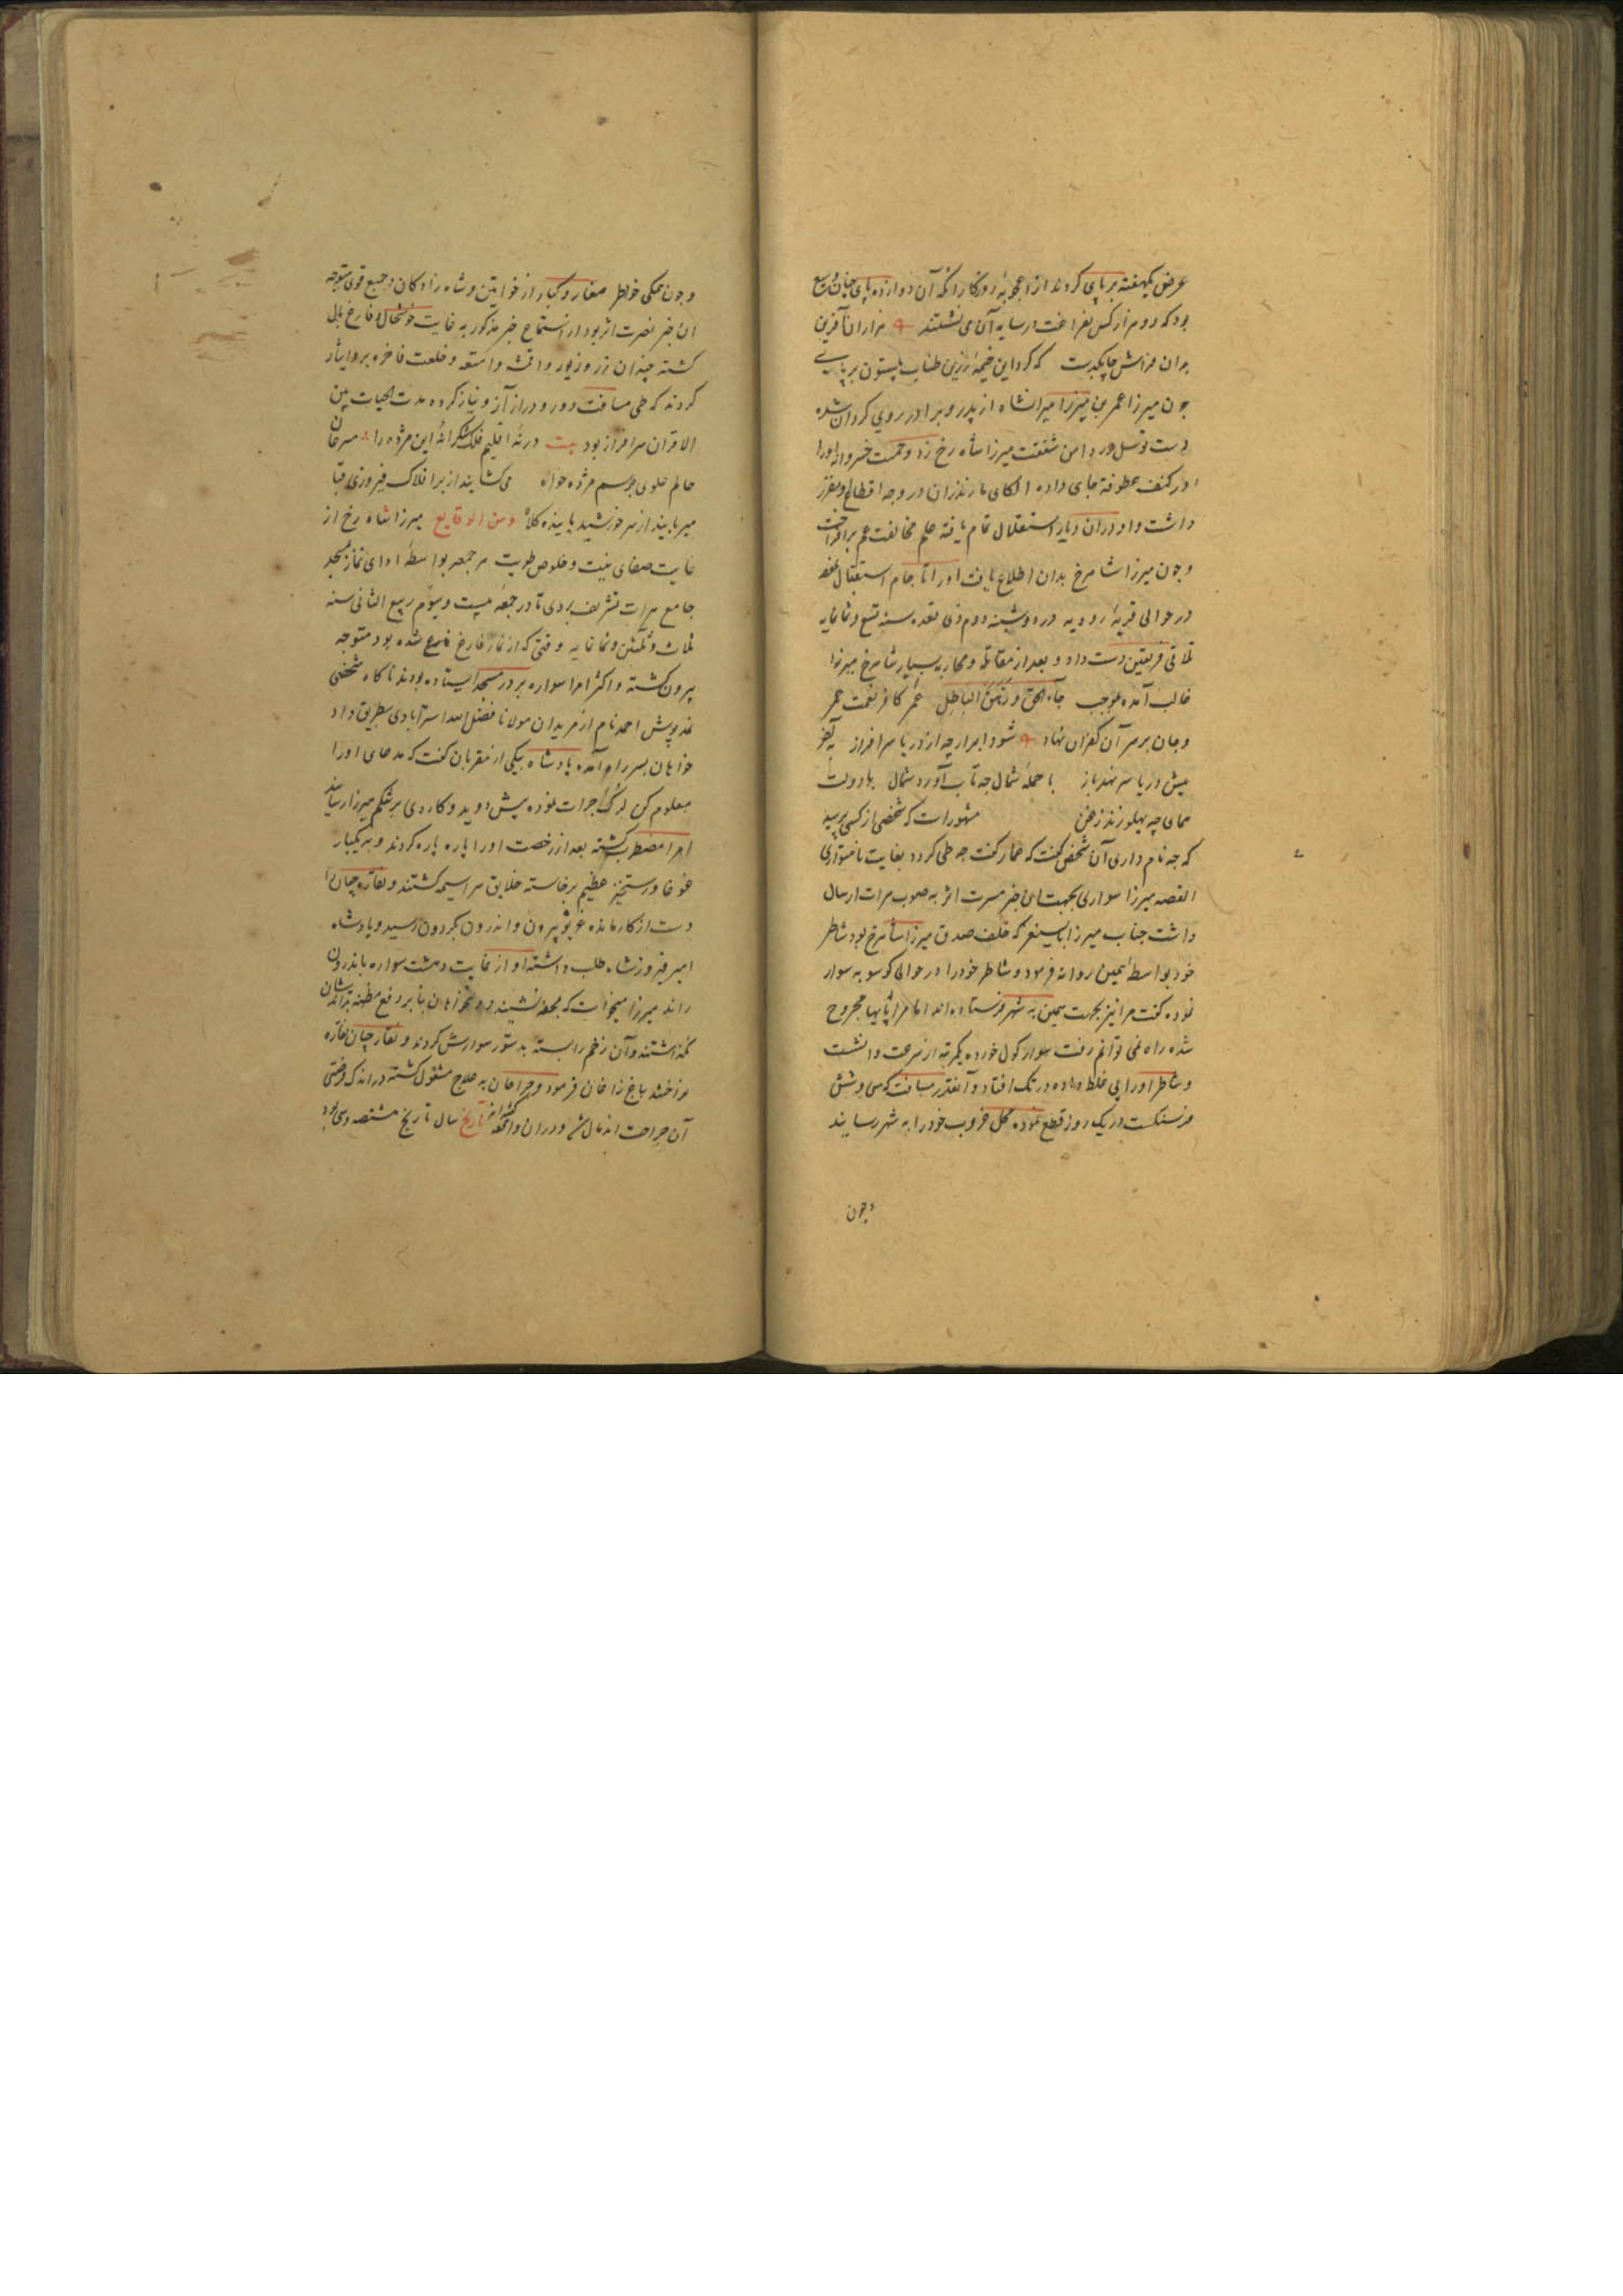 عرض یکهفته بر پای کردند از اعجوبهٔ روزکار انکه آن دوازده پای چنان وسیع
بود که دو هزار کس بفراغت در سایه آن می نشستند هزاران آفرین
بران فراش چابکدست که کرد این خیمهٔ زرین طناب بیستون بر پای
جون میرزا عمر بن میرزا میرانشاه از پدر و برادر روی کردان شده
دست توسل در دامن شفقت میرزا شاه رخ زد و حمت خسروانه اورا
در کنف عطوفة جای داده الکای مازندران در وجه اقطاع او مقرر
داشت و او دران دیار استقلال تمام یافته علم مخالفت عم برافراخت
و جون میرزا شاهرخ بدان اطلاع یافت اورا تا جام استقبال
در حوالی قریهٔ رودیه در دوشنبه دوم ذی قعده سنه تسع و ثمانمایه
تلاقی فریقین دست داد و بعد از مقاتله و محاربه بسیار شاهرخ میرزا
غالب آمده بموجب جاء الحق و زهق الباطل عمر کافر نعمت عمر
و جان بر سر آن کفران نهاد شود ابر ارچه از دریا سرافراز
پیش دریا سر نهد باز با حملهٔ شمال چه تاب آورد شمال با دولت
همای چه پهلو زند زغن مشهورات که شخصی از کسی پرسید
که چه نام داری آن شخص کفت که عمار کفت چه طی کردد بغایت ناهمواری
القصه میرزا سواری بجهت این خبر مسرت اثر به صوب هرات ارسال
داشت جناب میرزا بایسنغر که خلف صدق میرزا شاهرخ بود شاطر
خود بواسطهٔ همین روانه فرمود و شاطر خود را در حوالی کوسویه سوار
نموده کفت مرا نیز بجهت همین به شهر فرستاده اند اما مرا پایها مجروح
شده راه نمی توانم رفت سوار کول خورده یکمرتبه از سرعت وانشست
و شاطر اورا پی غلط داده در تک افتاد و آنقدر مسافت که سی و شش
فرسنکست در یک روز قطع نموده محل غروب خود را به شهر رسانید
وجون
و جون همکی خواطر صغار و کبار از خواتین و شاه زادکان و جمیع قوی متوجه
ان خبر نصرت اثر بود از استماع خبر مذکور به غایت خوشحال و فارغ بال
کشته چندان زر و زیور و اقمشه و امتعه و خلعت فاخره برو ایثار
کردند که طی مسافت دور و دراز آز و نیاز کرده مدت الحیات بین
الاقران سرافراز بود بیت در نه اقلیم فلک شکرانهٔ این مژده را سرخان
عالم علوی برسم مژده خواه می کشایند از بر افلاک فیروزی قبا
میربایند از سر خورشید پاینده کلاه و من الوقایع میرزا شاه رخ از
غایت صفای نیت و خلوص طویت هر جمعه بواسطهٔ ادای نماز بمسجد
جامع هرات تشریف بردی تا در جمعهٔ بیست و سیوم ربیع الثانی سنه
ثلاث و ثلثین و ثمانمایه وقتی که از نماز فارغ شده بود متوجه
بیرون کشته و اکثر امرا سواره بر در مسجد ایستاده بودند ناکاه شخصی
نمد پوش احمد نام از مریدان مولانا فضل الله استرآبادی بطریق داد
خواهان بسر راه آمده پادشاه بیکی از مقربان کفت که مدعای اورا
معلوم کن جرات نموده پیش دوید و کاردی بر شکم میرزا رسانید
امرا مضطرب کشته بعد از رخصت اورا پاره پاره کردند و به یکبار
غوغا و رستخیز عظیم برخاسته خلایق سراسیمه کشتند و نقاره چیان را
دست از کار مانده غریو بیرون و اندرون بکردون رسید و پادشاه
امیر فیروزشاه طلب داشته او از غایت دهشت سواره باندرون
راند میرزا میخواست که بمحفه نشیند دولتخواهان بنابر دفع مظنه بداندیشان
نکذاشتند و آن زخم را بسته بدستور سوارش کردند و نقارچیان نقاره
نواختند بباغ زاغان فرمود و جراحان به علاج مشغول کشته در اندک فرصتی
آن جراحت اندمال شد و دران واقعه کفته اند تاریخ سال تاریخ هشتصد و سی بود